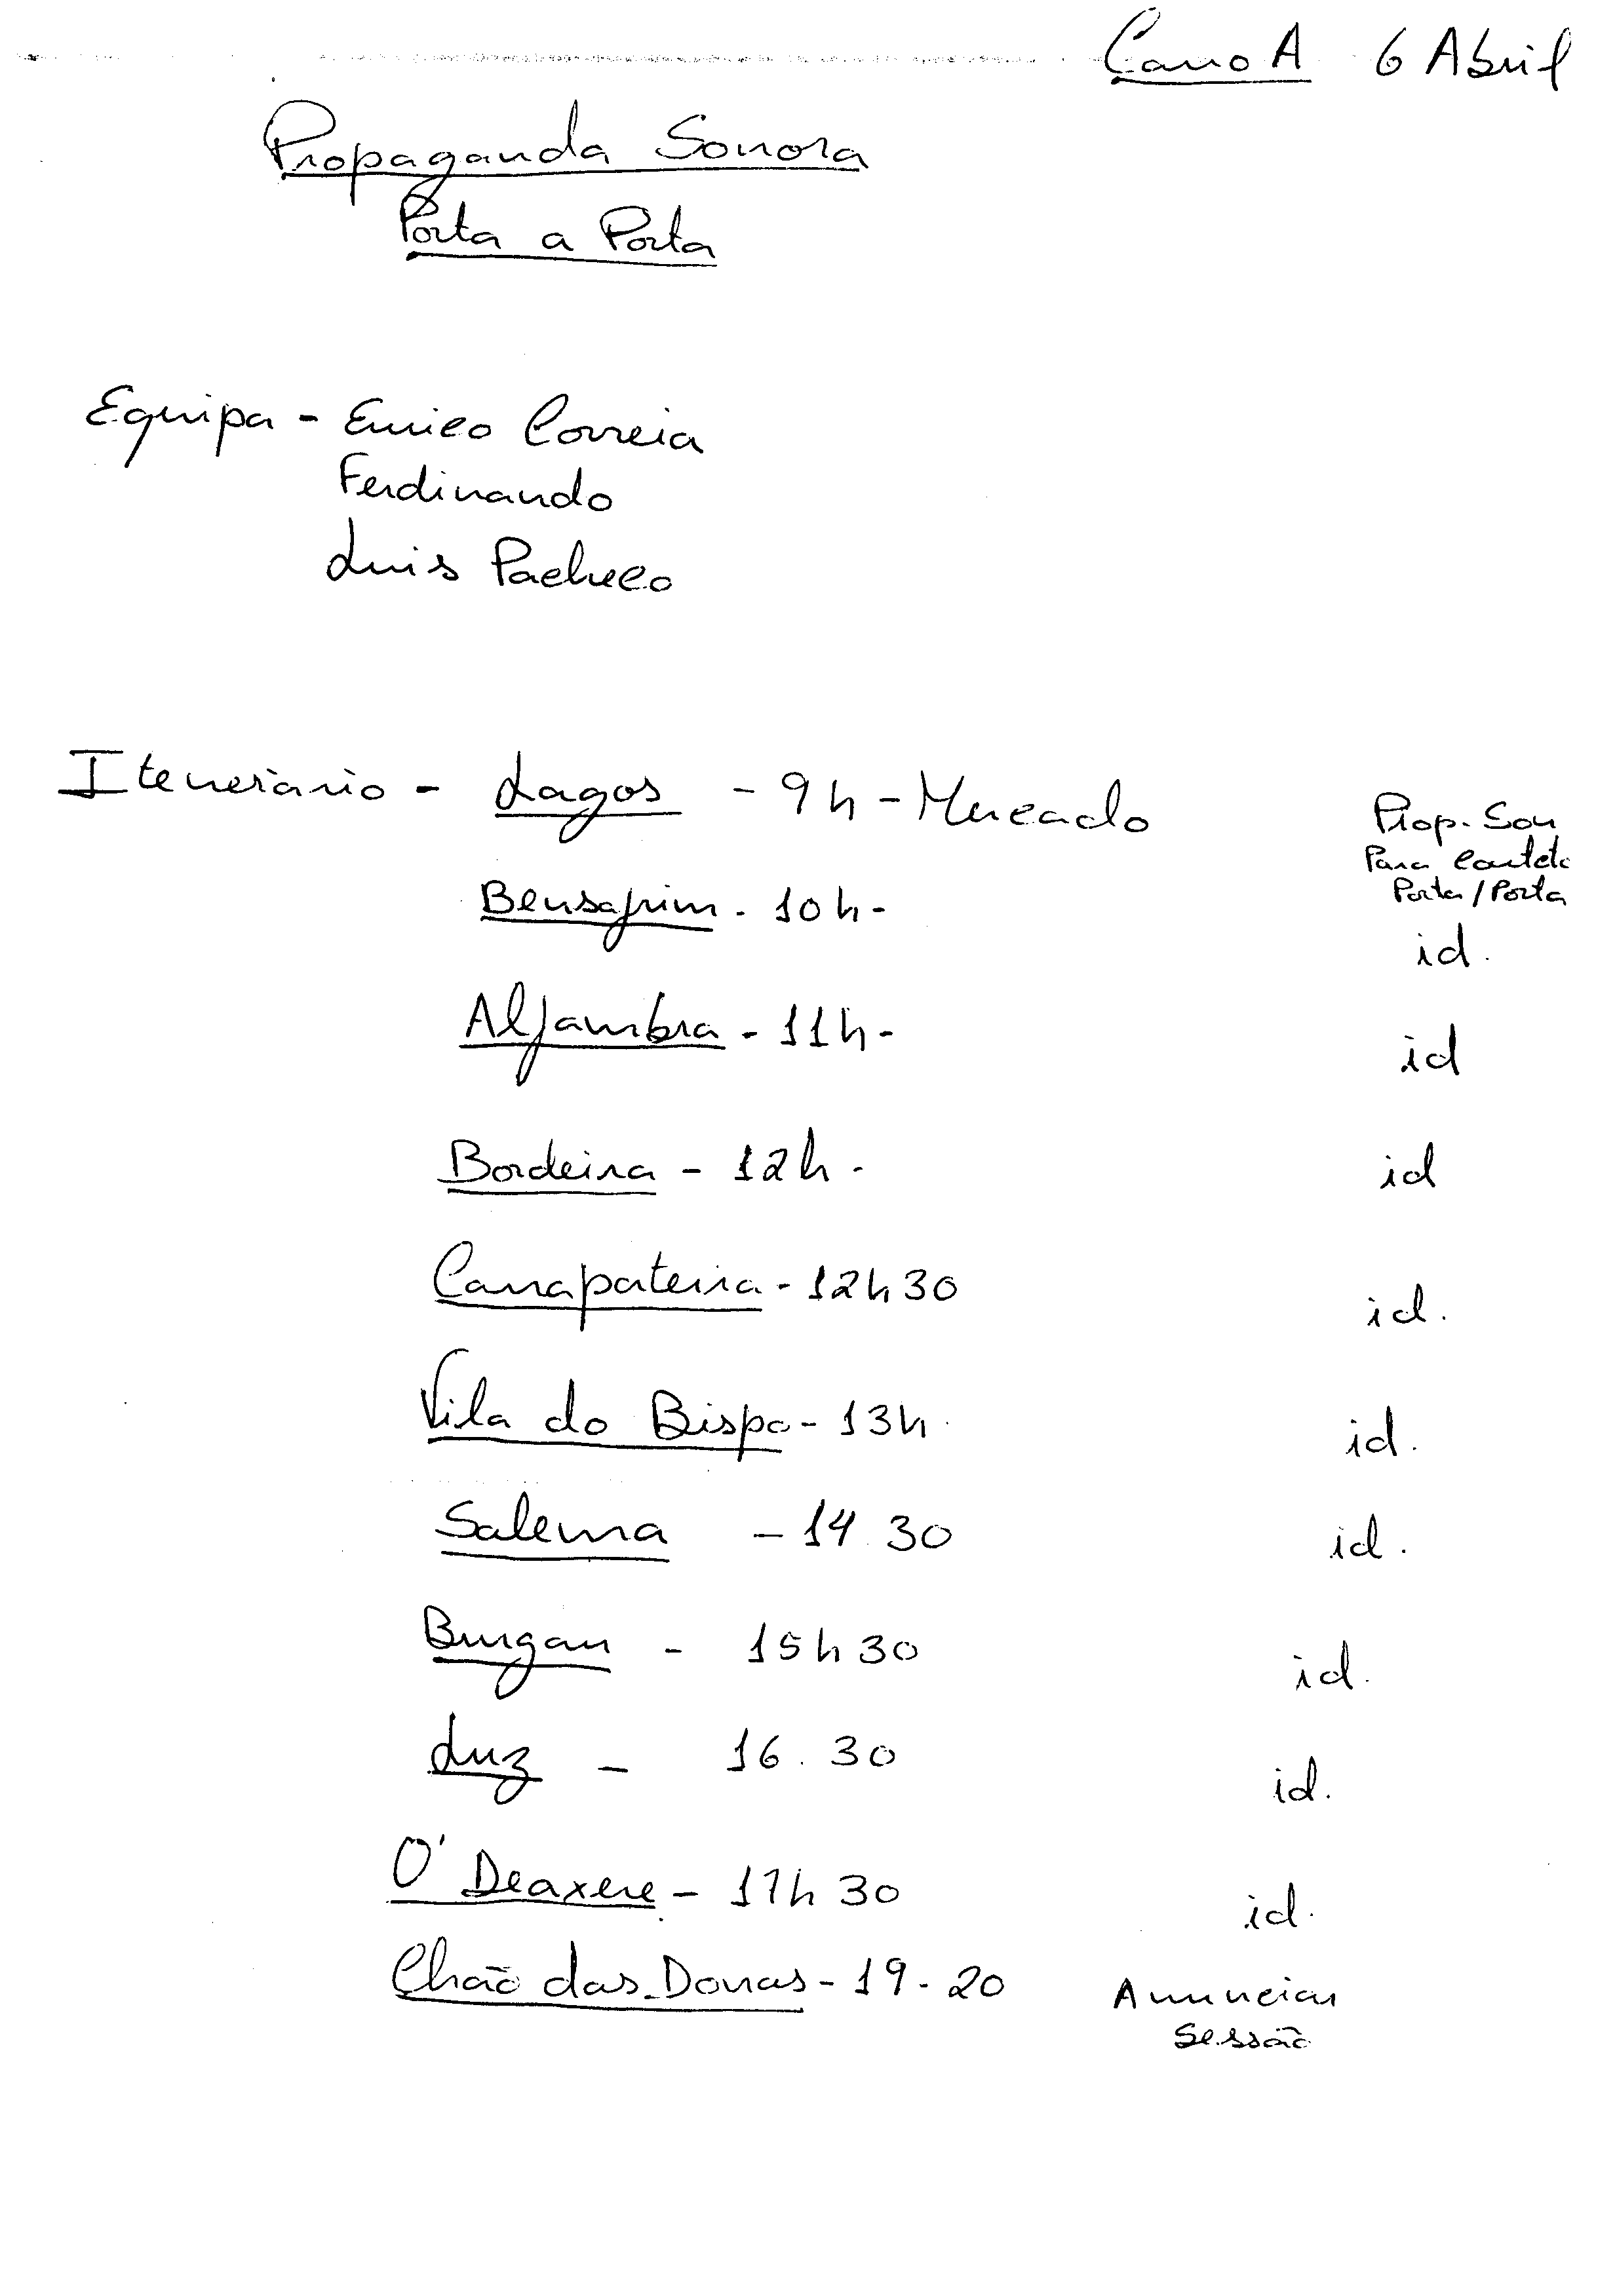 Carro A 6 Abril
Propaganda Sonora
Porta a Porta
Equipa - Eurico Correia
Ferdinando
Luis Pacheco
Itenerário - Lagos - 9h - Mercado
Prop. Son
Para
Porta / Porta
Bensafrim - 10h - id.
Aljambra - 11h - id
Bordeira - 12h - id
Carrapateira - 12h30 id.
Vila do Bispo - 13h id.
Salema - 14.30 id.
Burgau - 15h30 id.
Luz - 16.30 id.
O'Deaxere - 17h30 id.
Chão das Donas - 19-20 Anunciar
Sessão